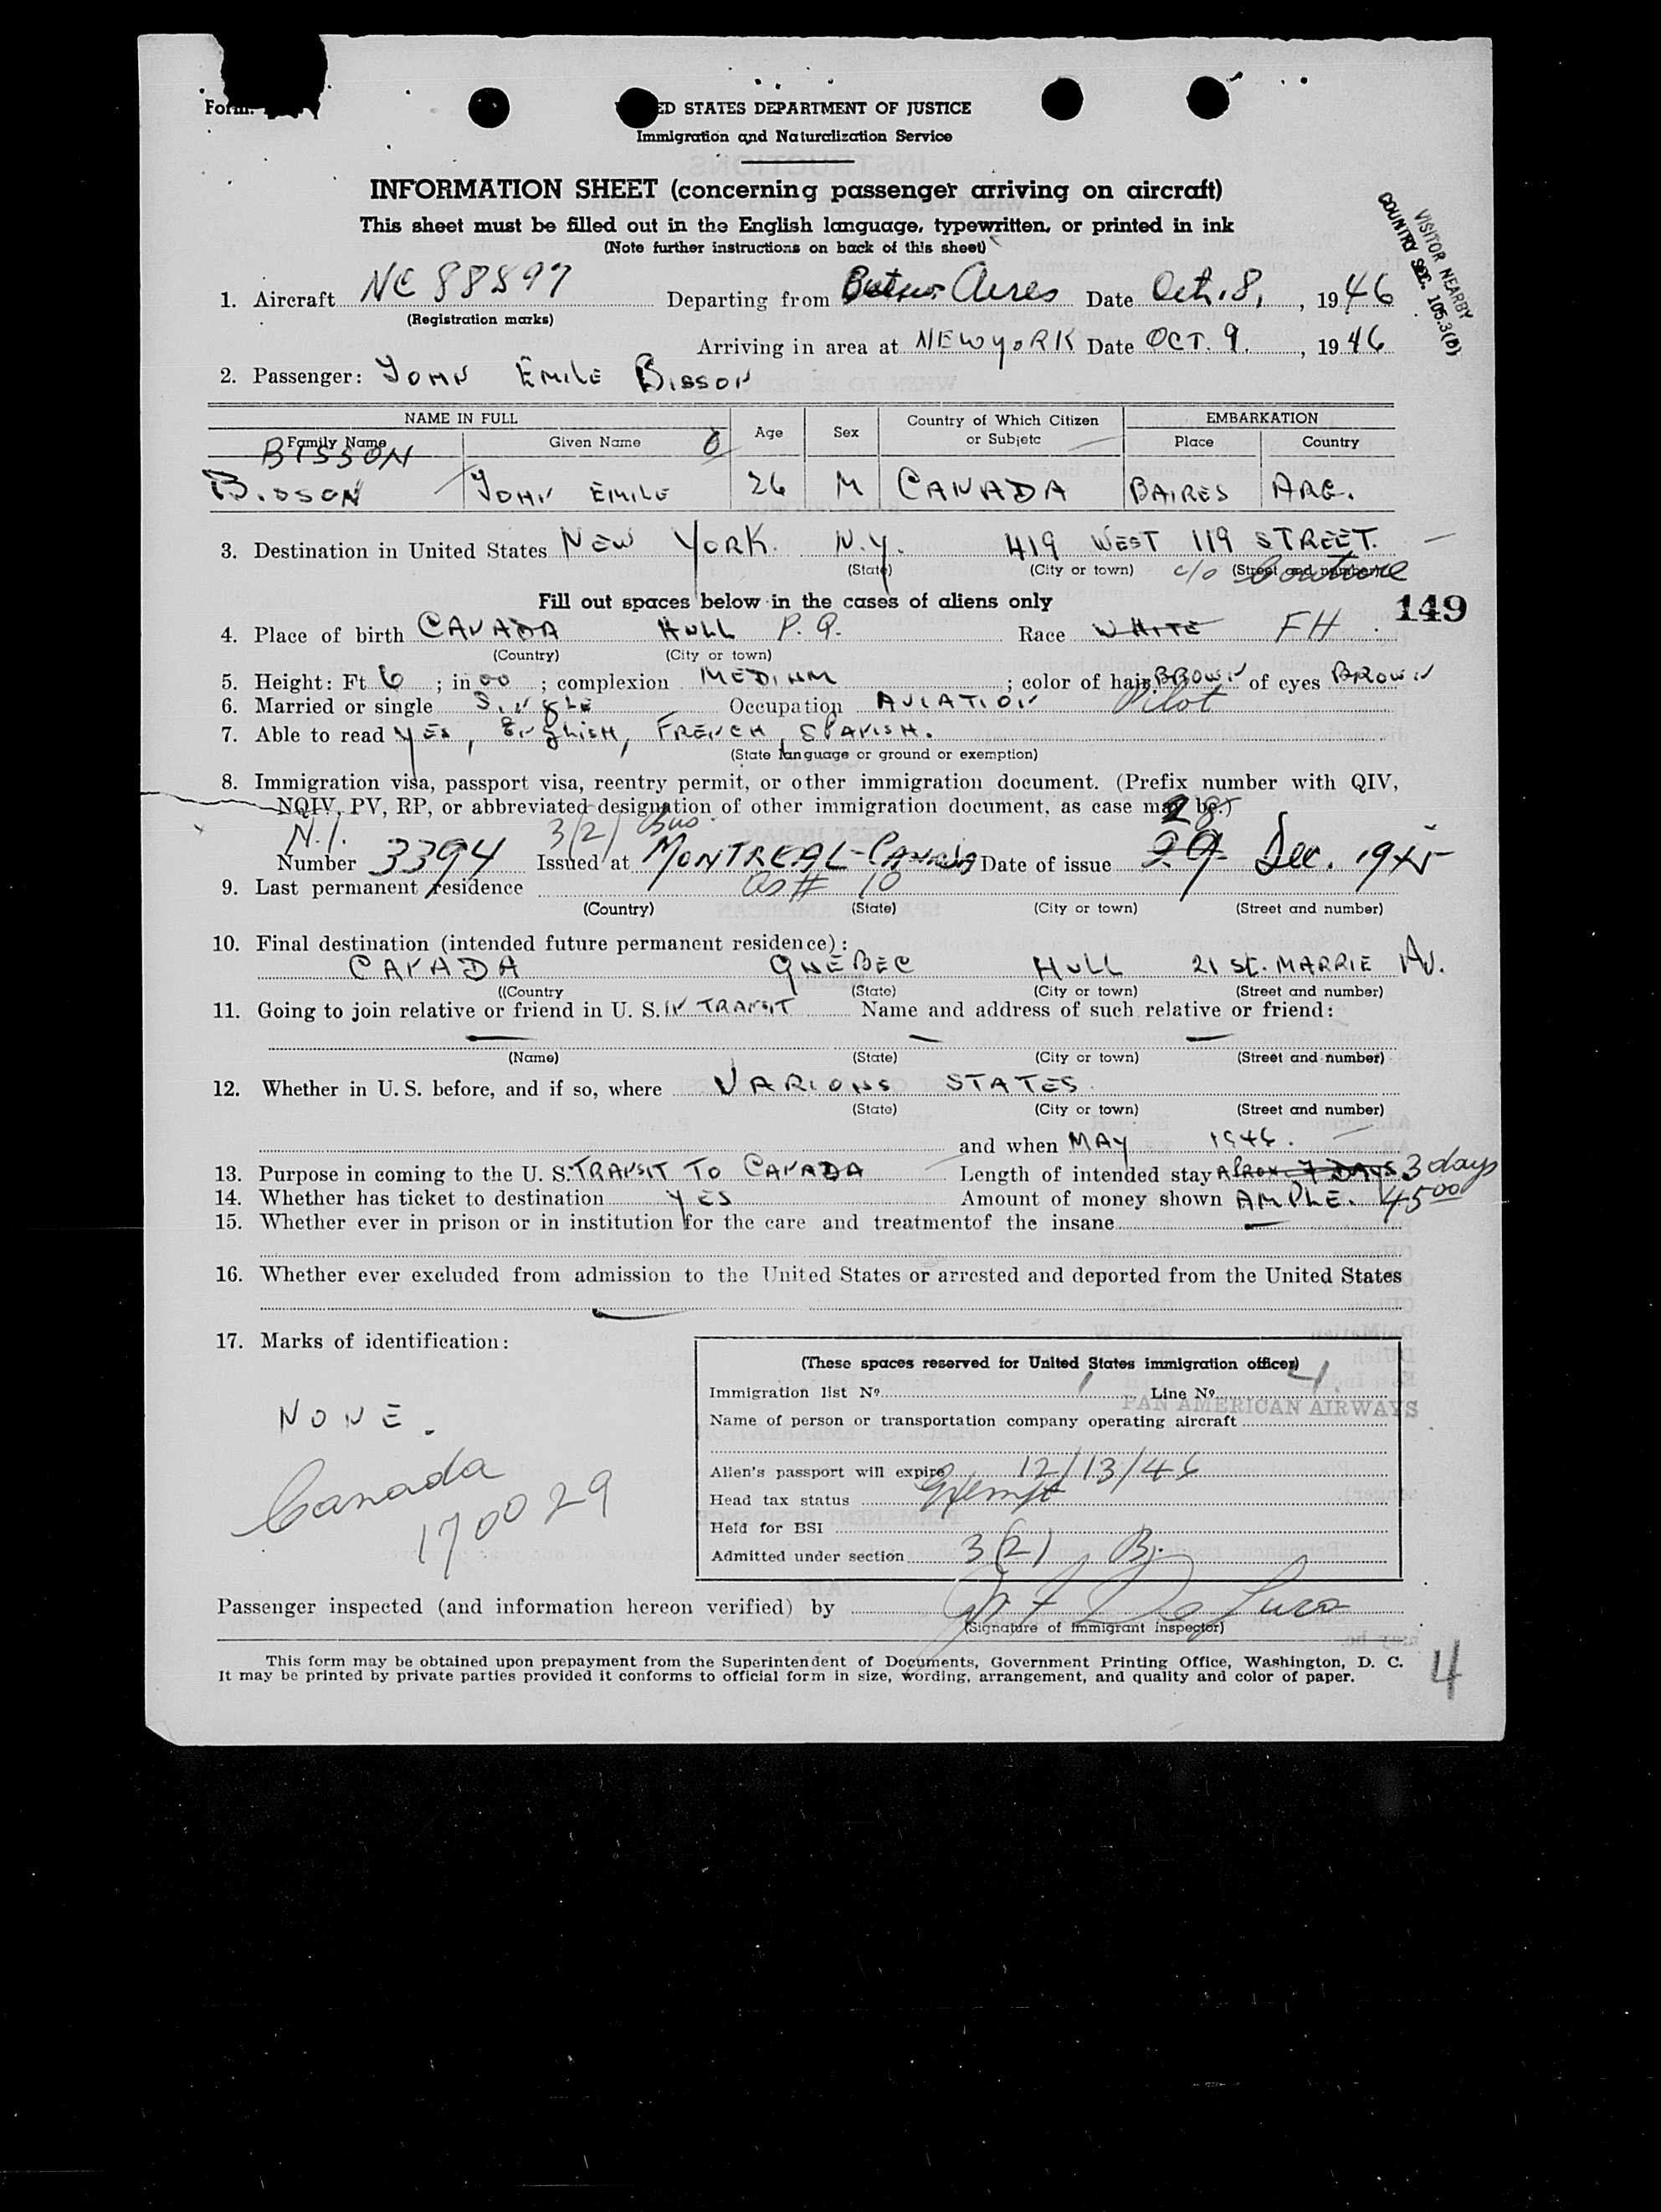 Form
ED STATES DEPARTMENT OF JUSTICE
Immigration and Naturalization Service
INFORMATION SHEET (concerning passenger arriving on aircraft)
This sheet must be filled out in the English language, typewritten, or printed in ink
(Note further instructions on back of this sheet)
VISITOR NEARBY
COUNTRY SEC. 105.3(B)
1. Aircraft NC 88897 Departing from Buenos Aires Date Oct. 8, , 19 46
(Registration marks)
Arriving in area at NEW YORK Date OCT. 9. , 19 46
2. Passenger: JOHN EMILE BISSON
NAME IN FULL Age Sex Country of Which Citizen or Subjetc EMBARKATION
Family Name Given Name Place Country
BISSON
BISSON JOHN EMILE 26 M CANADA BAIRES ARG.
3. Destination in United States NEW YORK. N.Y. 419 WEST 119 STREET.
(State) (City or town) c/o (Street and number)
Fill out spaces below in the cases of aliens only
149
4. Place of birth CANADA HULL P.Q. Race WHITE FH
(Country) (City or town)
5. Height: Ft 6 ; in 00 ; complexion MEDIUM ; color of hair BROWN of eyes BROWN
6. Married or single SINGLE Occupation AVIATION Pilot
7. Able to read YES, ENGLISH, FRENCH, SPANISH.
(State language or ground or exemption)
8. Immigration visa, passport visa, reentry permit, or other immigration document. (Prefix number with QIV,
NQIV, PV, RP, or abbreviated designation of other immigration document, as case may be.)
N.I. 3/2/ Bus. 28
Number 3394 Issued at MONTREAL-CANADA Date of issue 29 Dec. 1945
9. Last permanent residence as # 10
(Country) (State) (City or town) (Street and number)
10. Final destination (intended future permanent residence):
CANADA QUEBEC HULL 21 ST. MARRIE AV.
((Country (State) (City or town) (Street and number)
11. Going to join relative or friend in U. S. IN TRANSIT Name and address of such relative or friend:
(Name) (State) (City or town) (Street and number)
12. Whether in U. S. before, and if so, where VARIOUS STATES.
(State) (City or town) (Street and number)
and when MAY 1946.
13. Purpose in coming to the U. S. TRANSIT TO CANADA Length of intended stay APROX. 7 DAYS 3 days
14. Whether has ticket to destination YES Amount of money shown AMPLE. 45 00
15. Whether ever in prison or in institution for the care and treatmentof the insane
16. Whether ever excluded from admission to the United States or arrested and deported from the United States
17. Marks of identification:
NONE.
Canada
170029
(These spaces reserved for United States immigration officer)
Immigration list No 1 Line No 4
PAN AMERICAN AIRWAYS
Name of person or transportation company operating aircraft
Alien's passport will expire 12/13/46
Head tax status Exempt
Held for BSI
Admitted under section 3(2) B.
Passenger inspected (and information hereon verified) by De Luca
(Signature of Immigrant Inspector)
This form may be obtained upon prepayment from the Superintendent of Documents, Government Printing Office, Washington, D. C.
It may be printed by private parties provided it conforms to official form in size, wording, arrangement, and quality and color of paper.
4